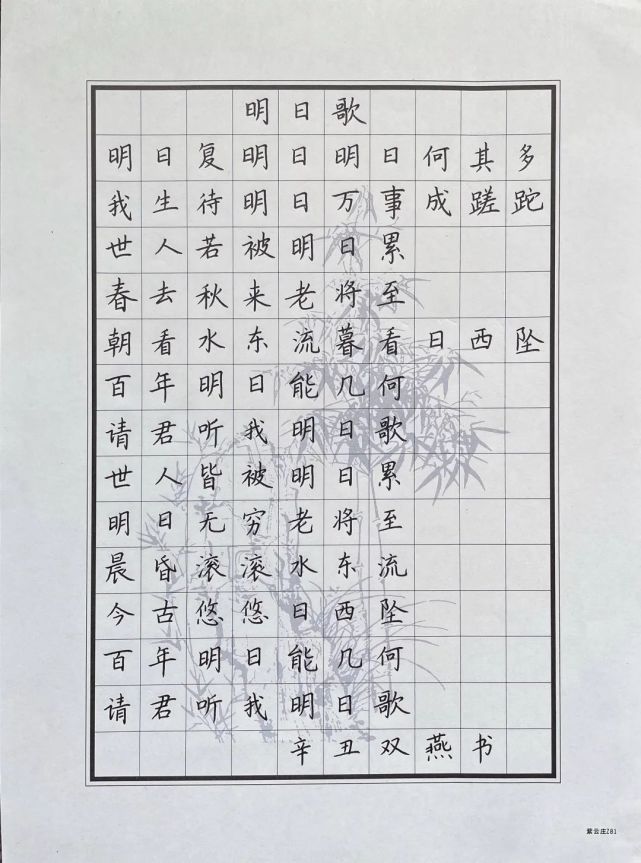 明日歌
明日复明日明日何其多
我生待明日万事成蹉跎
世人若被明日累
春去秋来老将至
朝看水东流暮看日西坠
百年明日能几何
请君听我明日歌
世人皆被明日累
明日无穷老将至
晨昏滚滚水东流
今古悠悠日西坠
百年明日能几何
请君听我明日歌
辛丑双燕书
紫云庄Z81